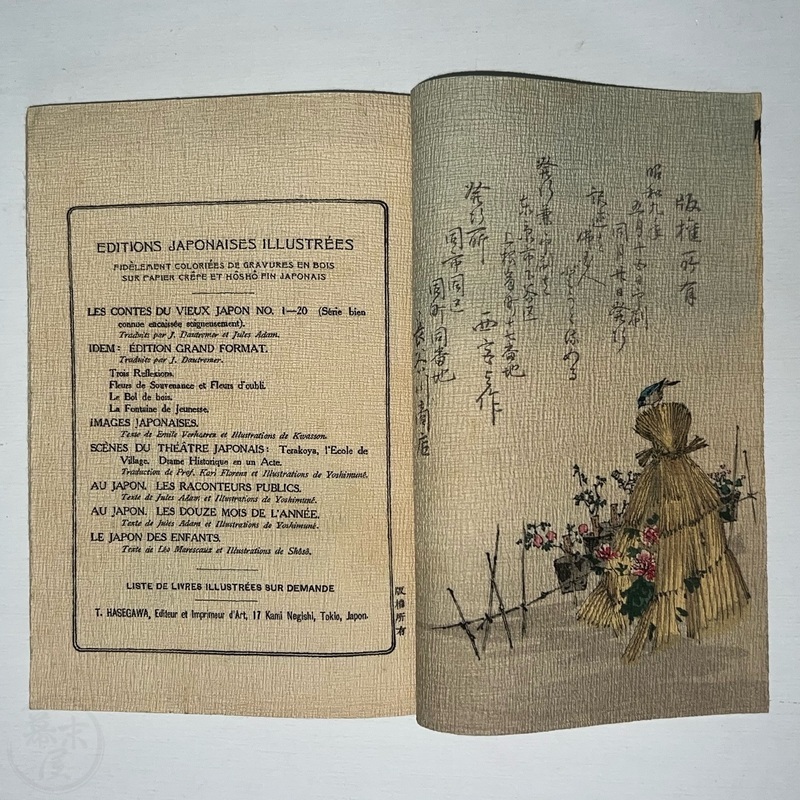 EDITIONS JAPONAISES ILLUSTRÉES
FIDÈLEMENT COLORIÉES DE GRAVURES EN BOIS
SUR PAPIER CRÊPE ET HÔSHÔ FIN JAPONAIS
LES CONTES DU VIEUX JAPON NO. 1—20 (Série bien
connue encaissée soigneusement).
Traduits par J. Dautremer et Jules Adam.
IDEM: ÉDITION GRAND FORMAT.
Traduits par J. Dautremer.
Trois Reflexions.
Fleurs de Souvenance et Fleurs d'oubli.
Le Bol de bois.
La Fontaine de Jeunesse.
IMAGES JAPONAISES.
Texte de Emile Verhaeren et Illustrations de Kwasson.
SCÈNES DU THÉÂTRE JAPONAIS: Terakoya, l'Ecole de
Village. Drame Historique en un Acte.
Traduction de Prof. Karl Florenz et Illustrations de Yoshimuné.
AU JAPON. LES RACONTEURS PUBLICS.
Texte de Jules Adam et Illustrations de Yoshimuné.
AU JAPON. LES DOUZE MOIS DE L'ANNÉE.
Texte de Jules Adam et Illustrations de Yoshimuné.
LE JAPON DES ENFANTS.
Texte de Léo Marescaux et Illustrations de Shôsô.
LISTE DE LIVRES ILLUSTRÉES SUR DEMANDE
T. HASEGAWA, Editeur et Imprimeur d'Art, 17 Kami Negishi, Tokio, Japon.
版權所有
版權所有
昭和九年
五月十五日印刷
同月廿日發行
東京市下谷區
上根岸町十七番地
西宮與作
發行所
同市同區
同町同番地
長谷川商店
幕末屋